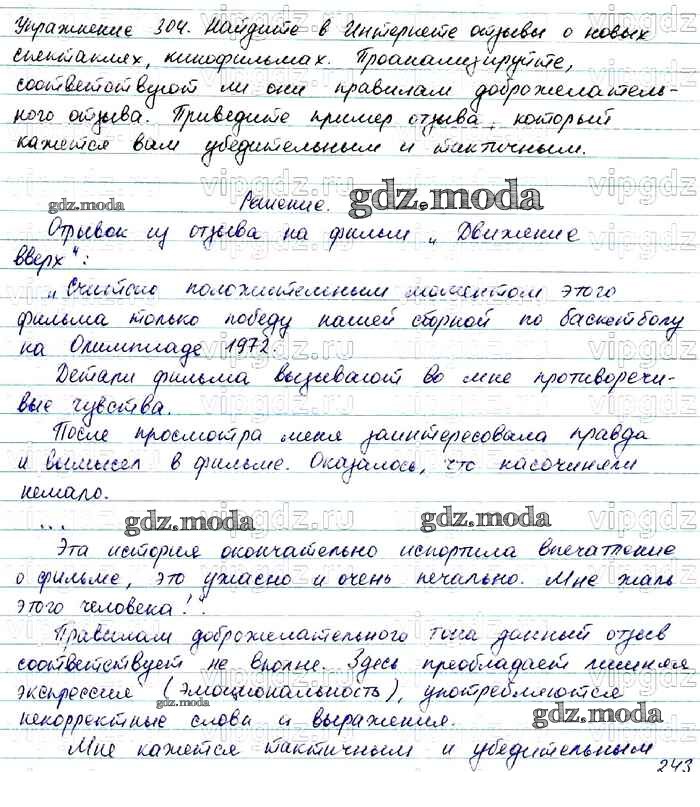 Упражнение 304. Найдите в Интернете отзывы о новых
спектаклях, кинофильмах. Проанализируйте,
соответствуют ли они правилам доброжелатель-
ного отзыва. Приведите пример отзыва, который
кажется вам убедительным и тактичным.
Решение.
gdz.moda
gdz.moda
Отрывок из отзыва на фильм „Движение
вверх":
„Считаю положительным моментом этого
фильма только победу нашей сборной по баскетболу
на Олимпиаде 1972.
Детали фильма вызывают во мне противоречи-
вые чувства.
После просмотра меня заинтересовала правда
и вымысел в фильме. Оказалось, что насочиняли
немало.
...
gdz.moda
gdz.moda
Эта история окончательно испортила впечатление
о фильме, это ужасно и очень печально. Мне жаль
этого человека!".
Правилам доброжелательного тона данный отзыв
соответствует не вполне. Здесь преобладает лишняя
экспрессия (эмоциональность), употребляются
некорректные слова и выражения.
gdz.moda
gdz.moda
Мне кажется тактичным и убедительным
243